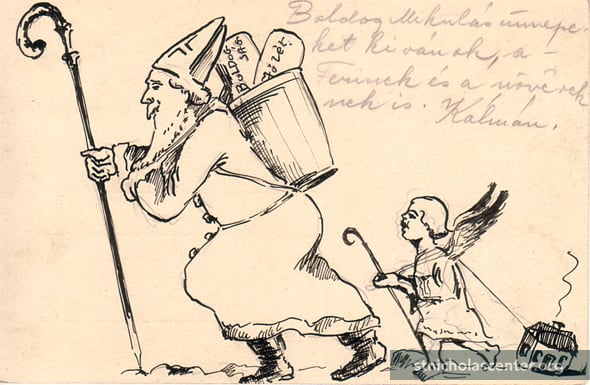 Boldog Mikulás ünnepe-
ket kivánok, a
Ferinek és a növérek
nek is. Kálmán.
BOLDOG
SÁG
stnicholascenter.org